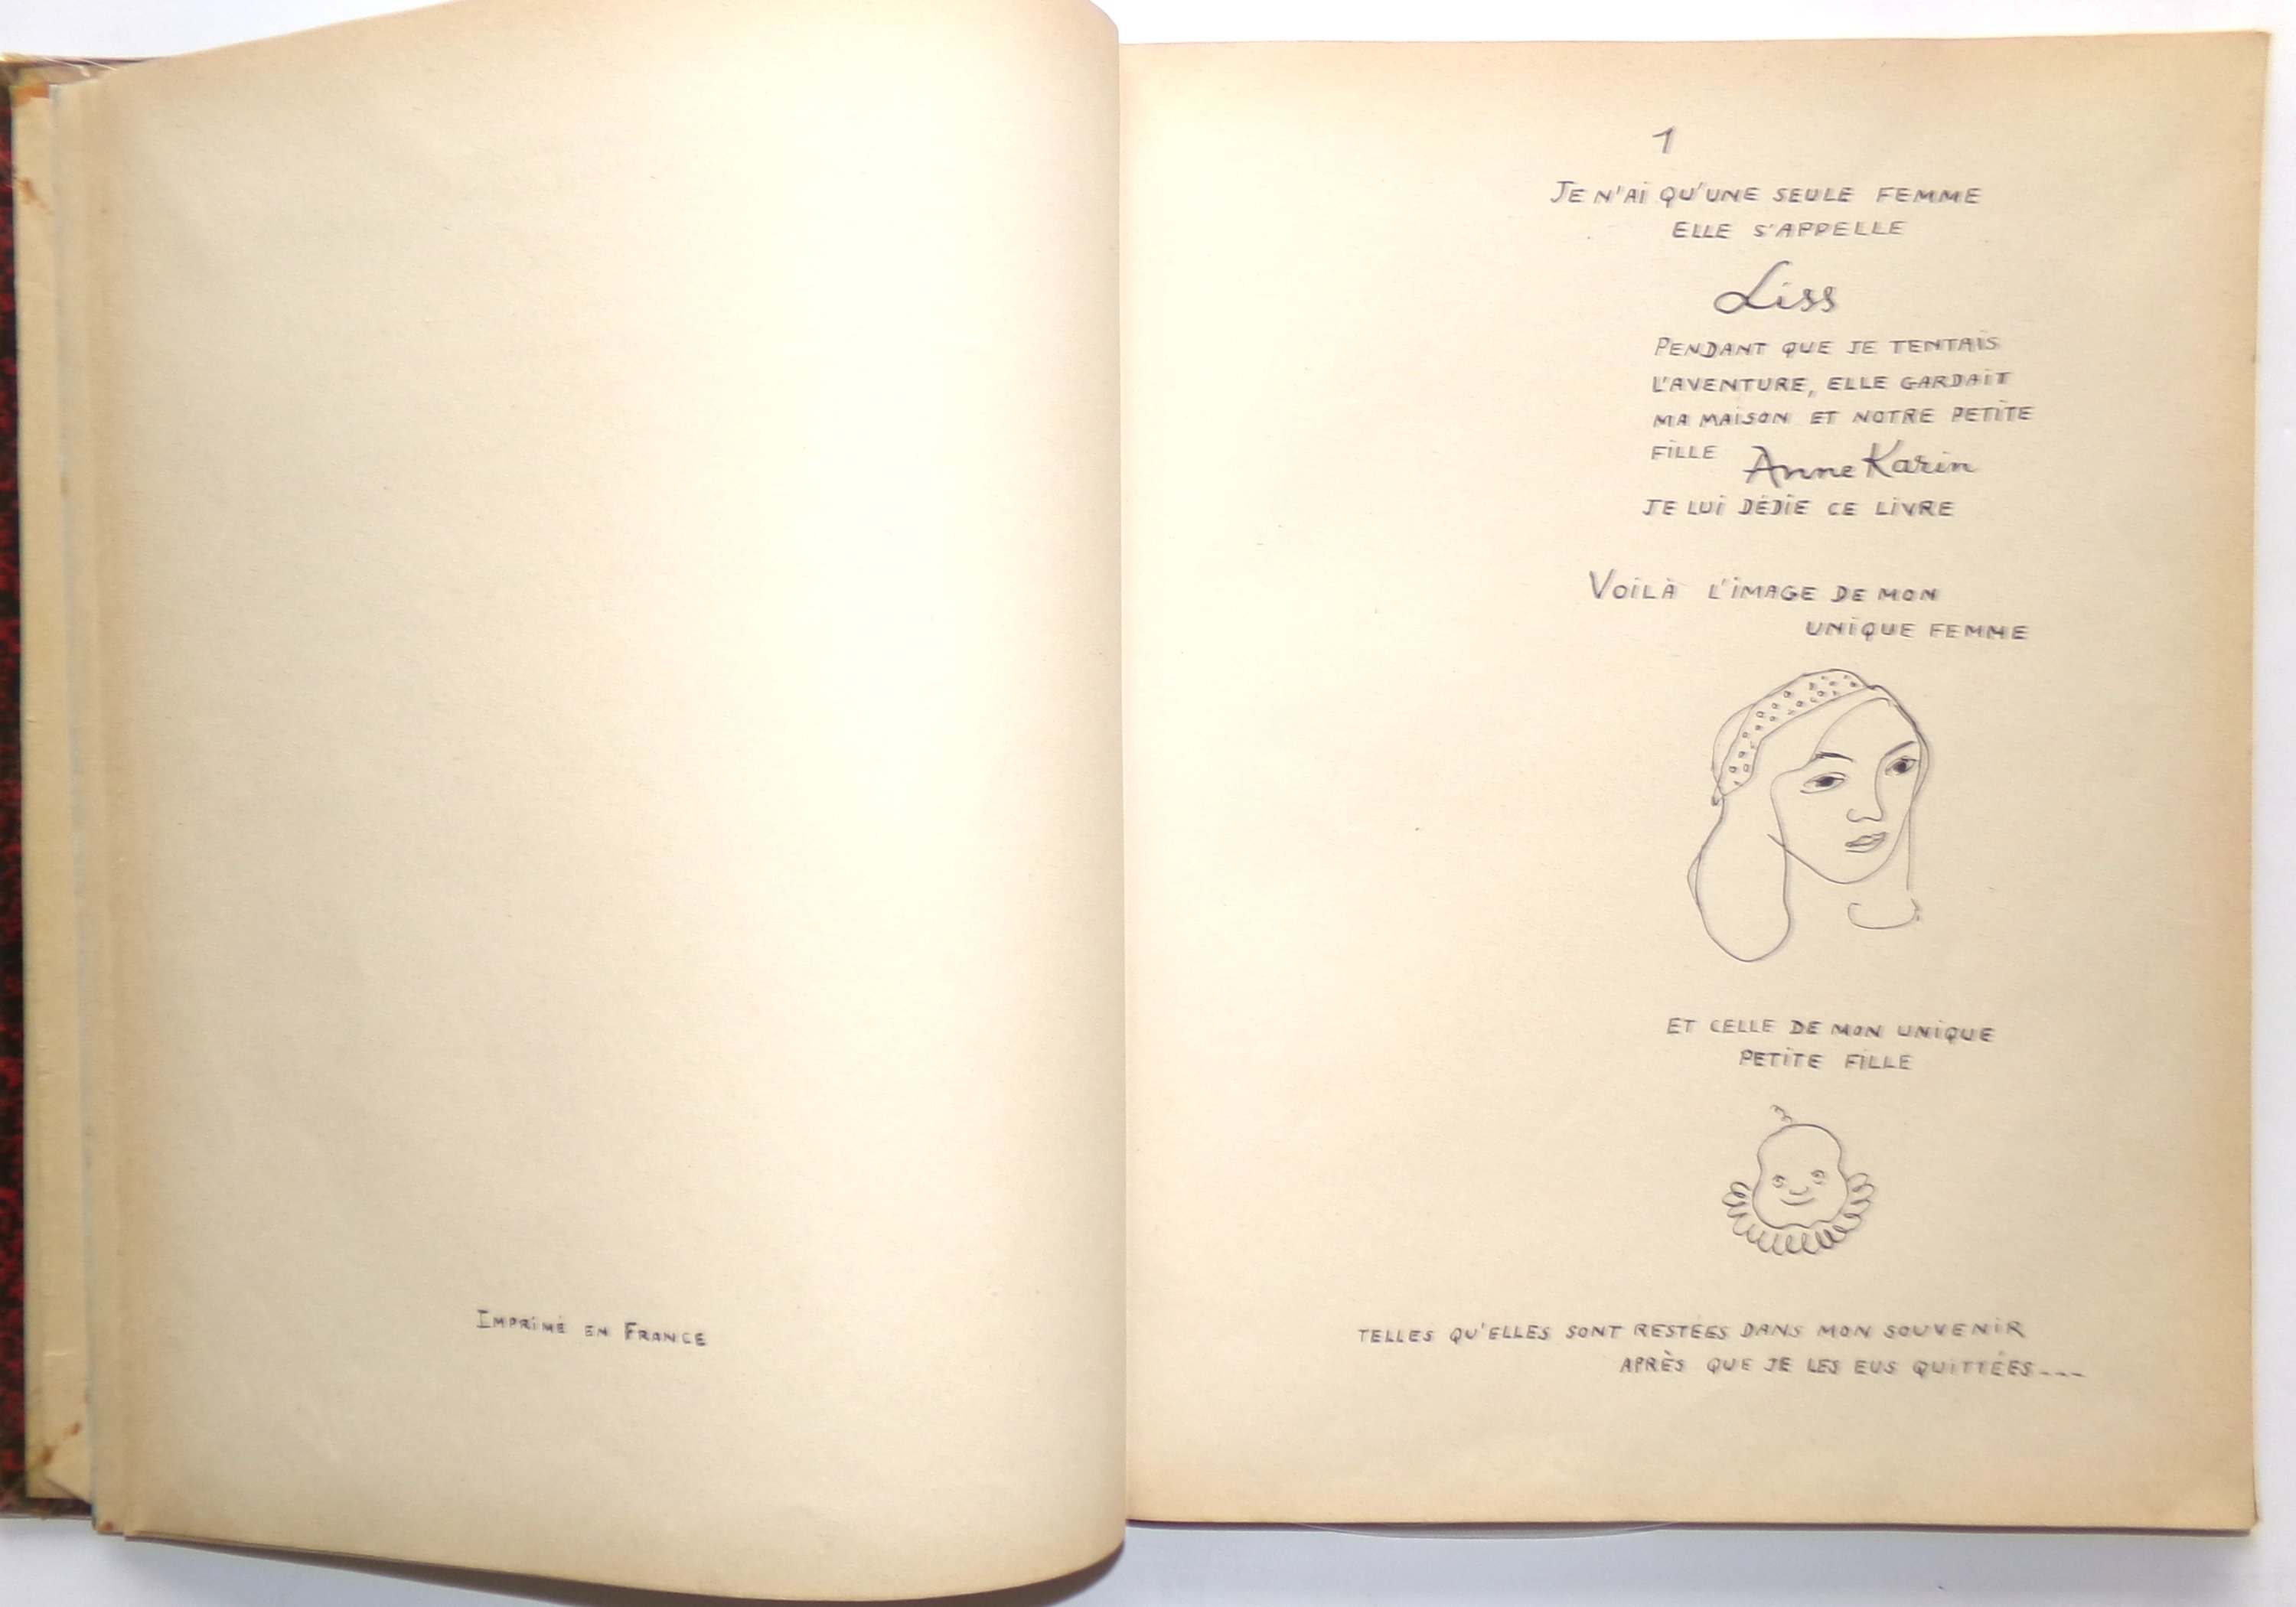 Imprimé en France
1
Je n'ai qu'une seule femme
elle s'appelle
Liss
Pendant que je tentais
l'aventure, elle gardait
ma maison et notre petite
fille Anne Karin
je lui dédie ce livre
Voilà l'image de mon
unique femme
et celle de mon unique
petite fille
telles qu'elles sont restées dans mon souvenir
après que je les eus quittées---